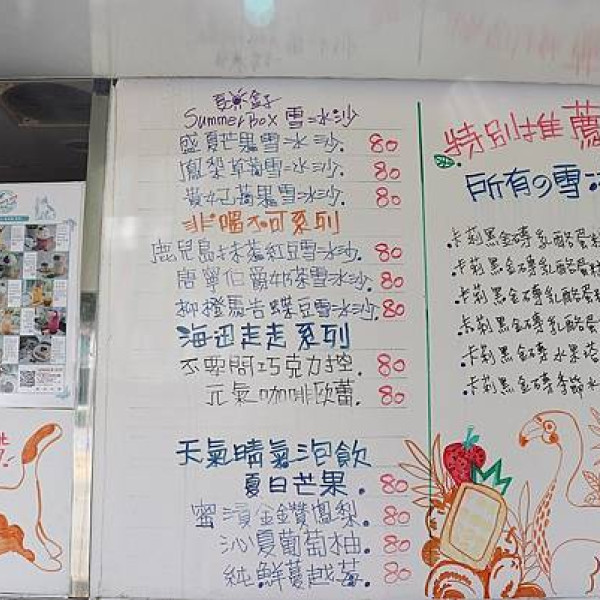 夏樂盒子
SummerBox 雪冰沙
盛夏芒果雪冰沙. 80
鳳梨草莓雪冰沙. 80
黃奶蘋果雪冰沙. 80
非喝不可系列
鹿兒島抹茶紅豆雪冰沙. 80
唐寧伯爵奶茶雪冰沙. 80
柳橙馬告蝶豆雪冰沙. 80
海迅走走系列
不要問巧克力控. 80
元氣咖啡歐蕾. 80
天氣晴氣泡飲
夏日芒果. 80
蜜漬金鑽鳳梨. 80
沁夏葡萄柚. 80
純鮮蔓越莓. 80
特別推薦
所有の雪冰
.卡莉黑金磚乳酪蛋糕
.卡莉黑金磚乳酪蛋糕
.卡莉黑金磚乳酪蛋糕
.卡莉黑金磚乳酪蛋
.卡莉黑金磚水果塔
.卡莉黑金磚季節水